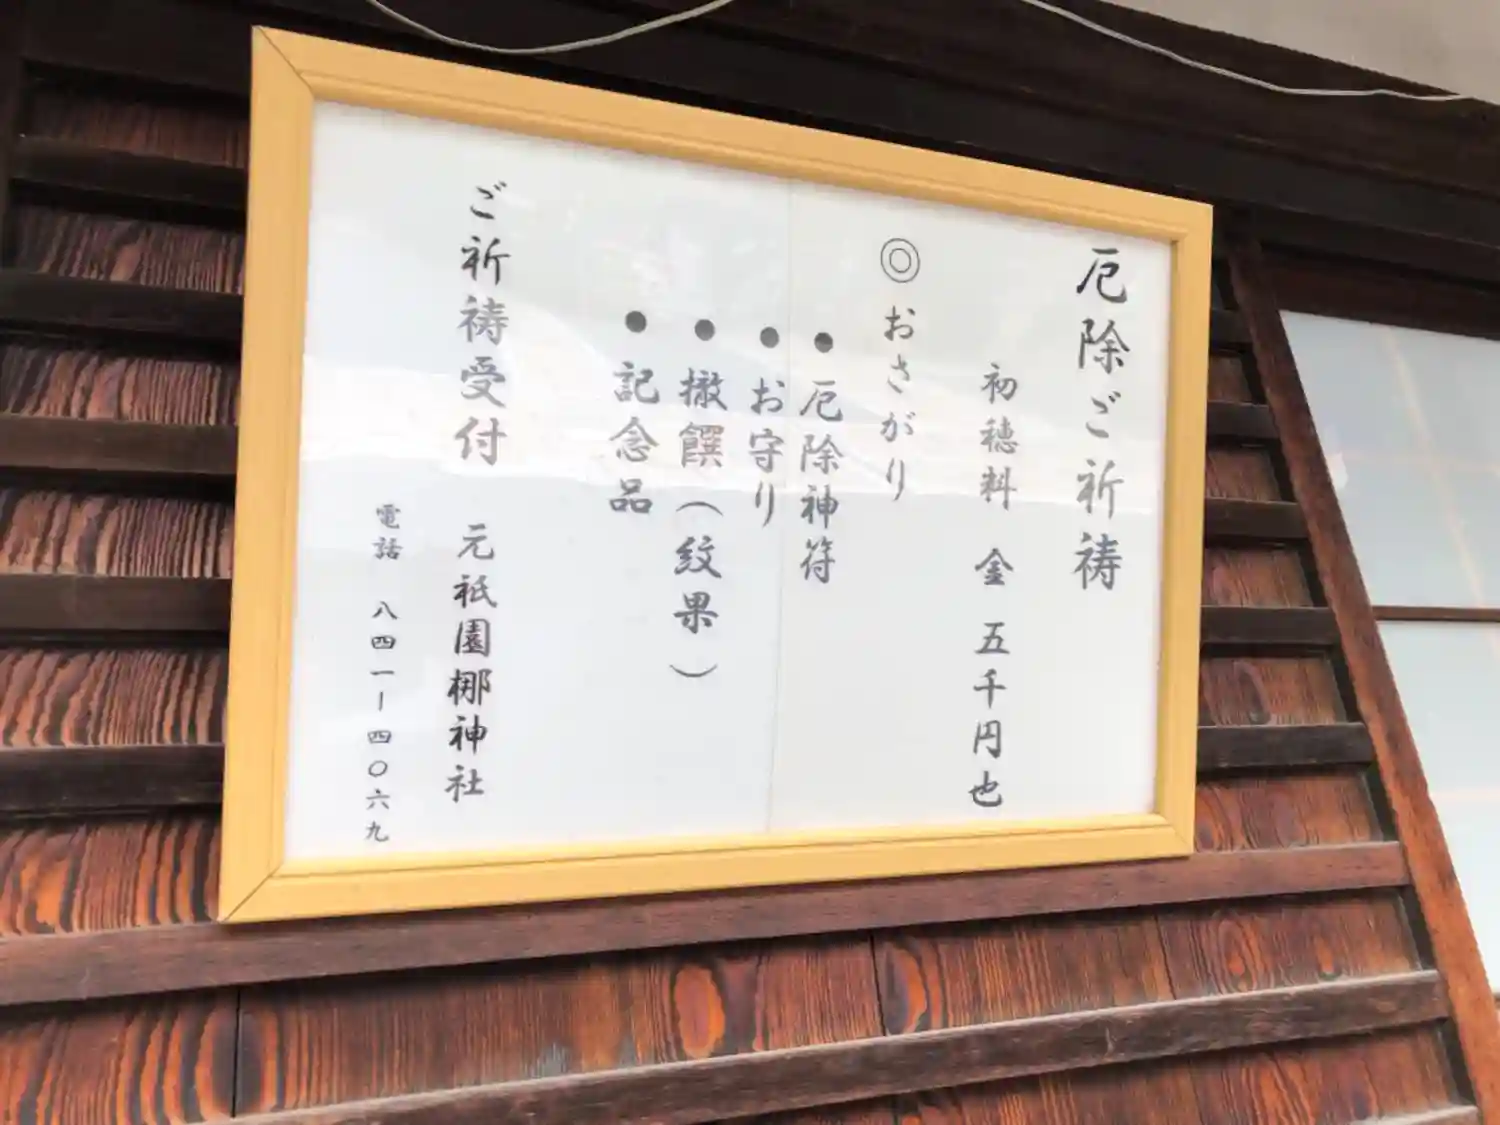 厄除ご祈祷
初穂料 金 五千円也
◎おさがり
●厄除神符
●お守り
●撤饌(紋果)
●記念品
ご祈祷受付 元祇園梛神社
電話 八四一ー四〇六九